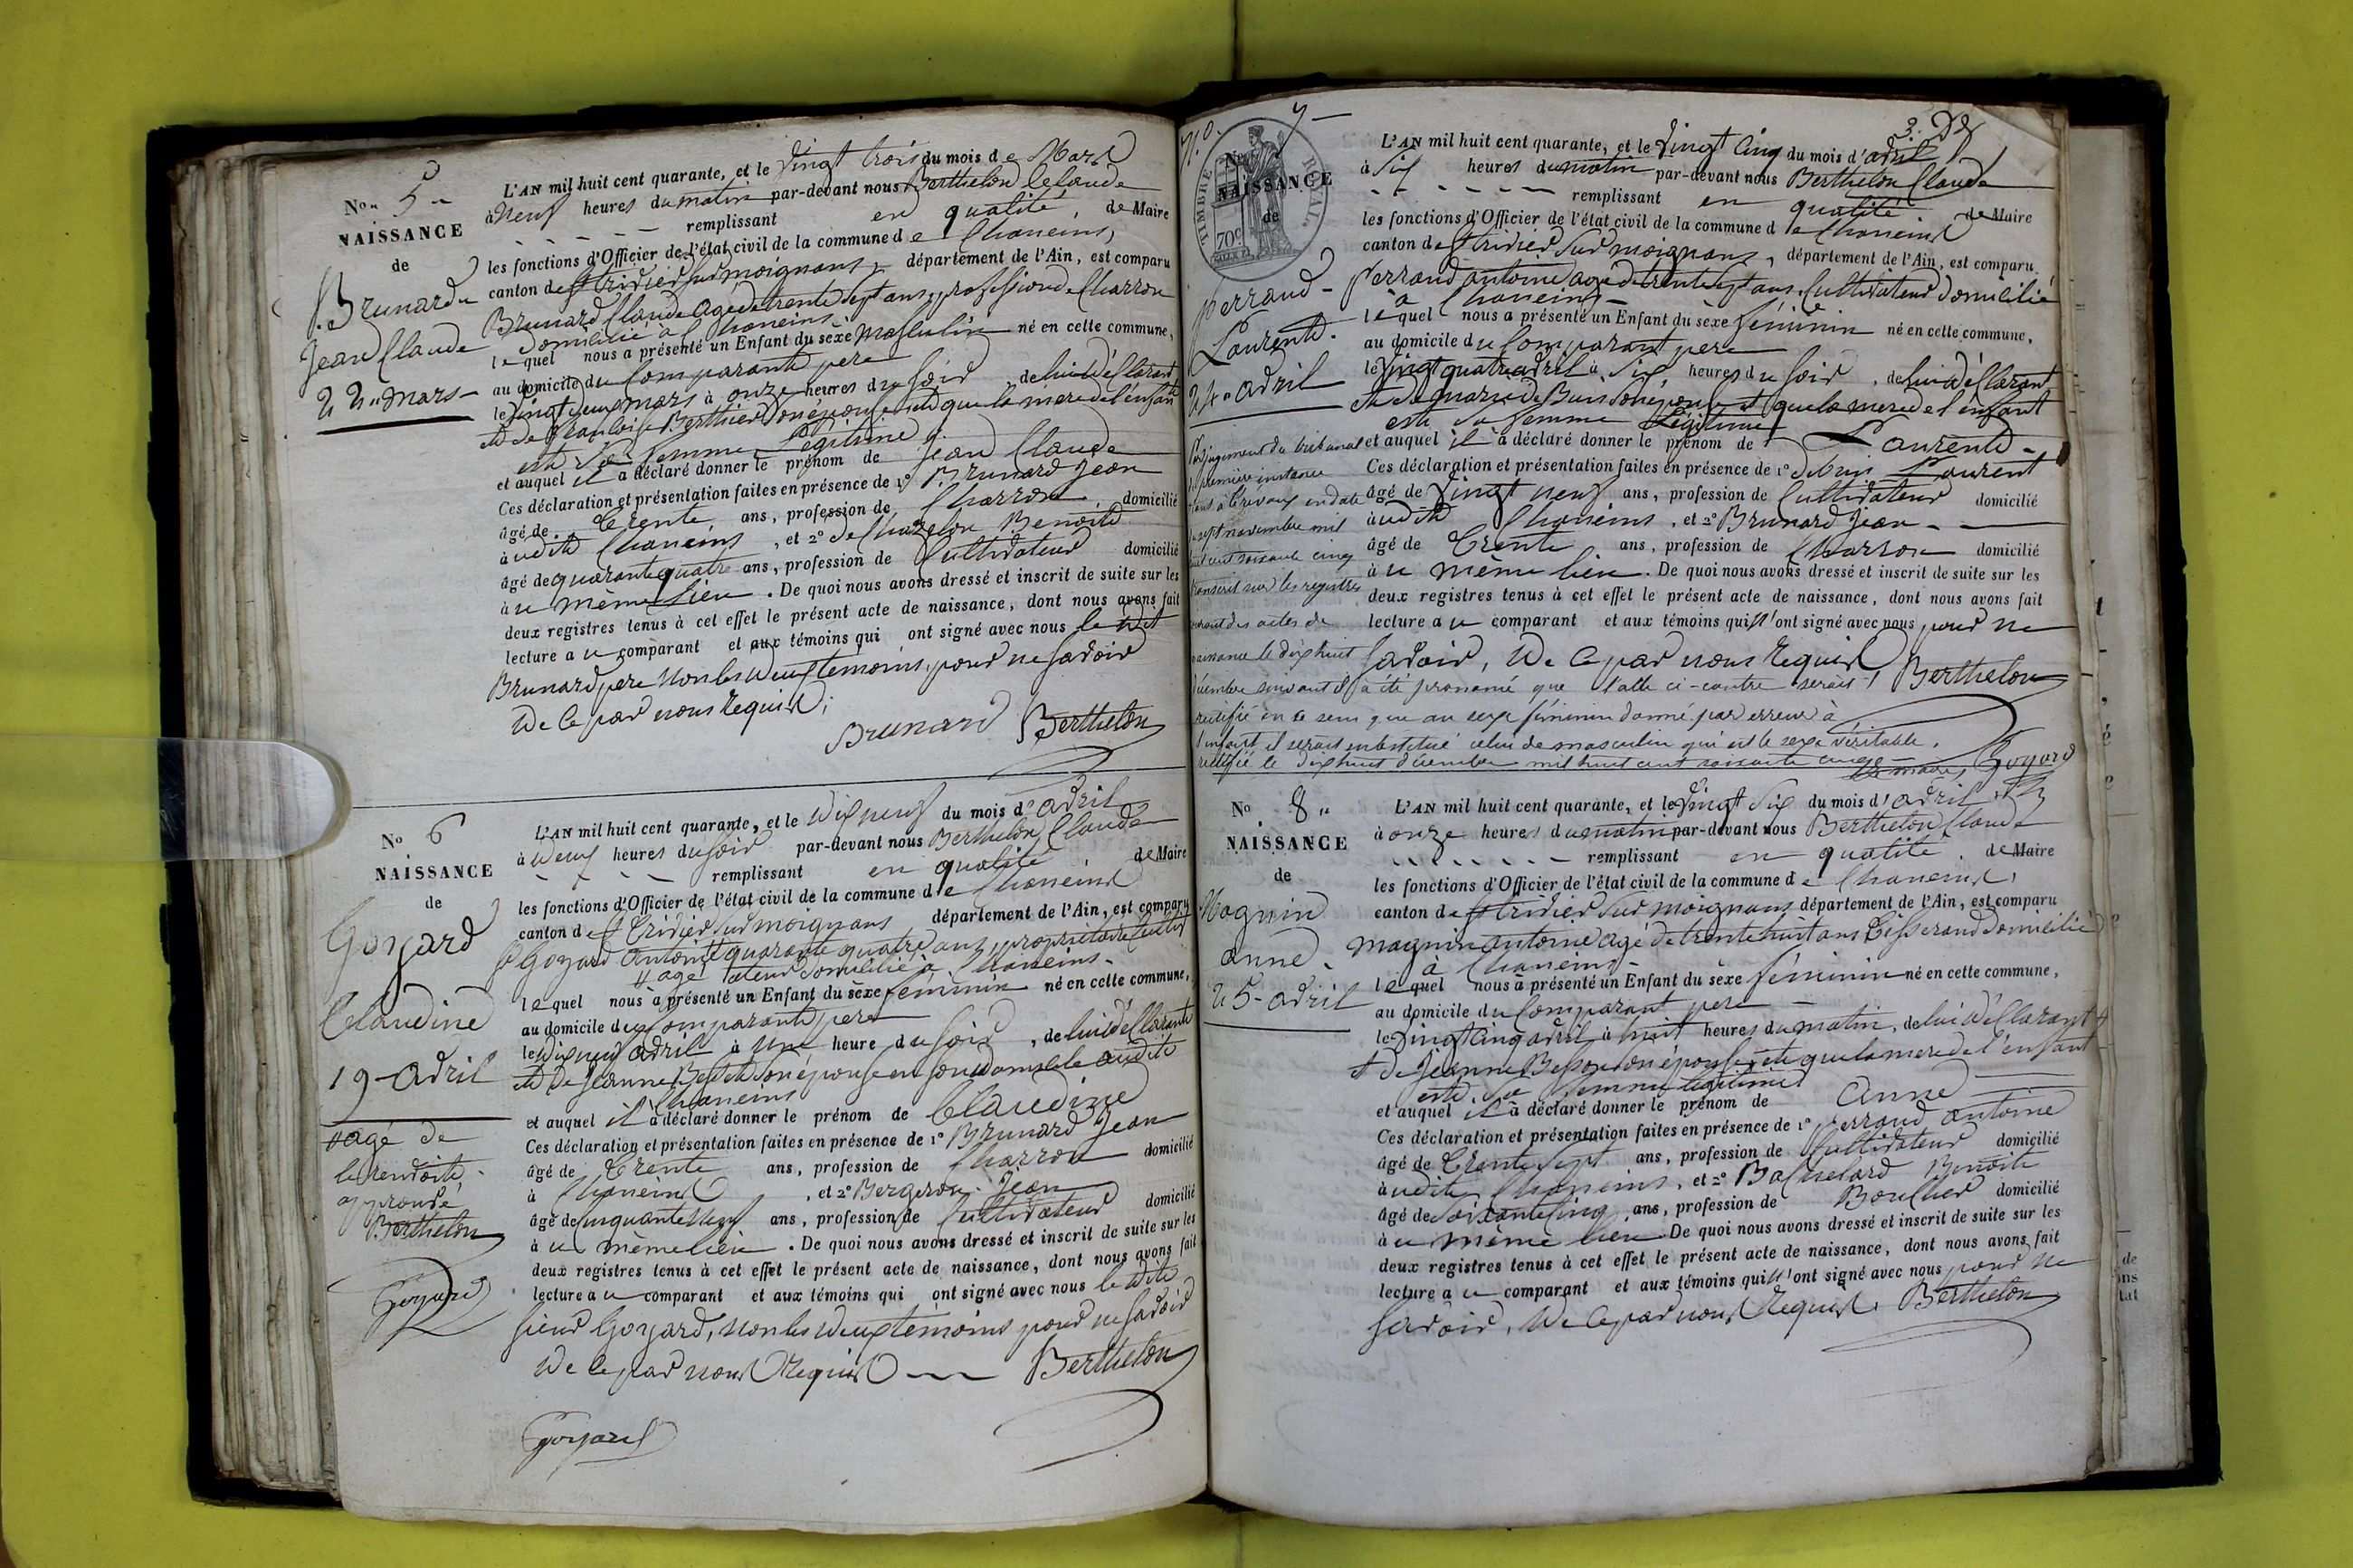 No " 5 "
NAISSANCE
de
Brunard
Jean Claude
22 " Mars -
L'AN mil huit cent quarante, et le Vingt trois du mois de Mars
à Neuf heures du matin par-devant nous Berthelon Claude
remplissant en qualité de Maire
les fonctions d'Officier de l'état civil de la commune de Chaneins,
canton de St tridier sur moignans, département de l'Ain, est comparu
Brunard Claude agé de trente sept ans, profession de Charron
domicilié à Chaneins
lequel nous a présenté un Enfant du sèxe Masculin né en cette commune,
au domicile du Comparant pere
le Vingt deux mars à onze heures du soir, de lui déclarant
et de françoise Berthier son épouse et que la mere de l'enfant
est sa femme Légitime
et auquel il a déclaré donner le prénom de Jean Claude
Ces déclaration et présentation faites en présence de 1° Brunard Jean
âgé de trente ans, profession de Charron domicilié
à udit Chaneins, et 2° de Chazelon Benoit
âgé de quarante quatre ans, profession de Cultivateur domicilié
à u même lieu. De quoi nous avons dressé et inscrit de suite sur les
deux registres tenus à cet effet le présent acte de naissance, dont nous avons fait
lecture a u comparant et aux témoins qui ont signé avec nous le dit
Brunard pere Non les deux témoins, pour ne savoir
de ce par nous Requis,
Brunard Berthelon
No 6
NAISSANCE
de
Goyard
Claudine
19 - avril
agé de
le renvoit
approuvé
Berthelon
Goyard
L'AN mil huit cent quarante, et le dix neuf du mois d'avril
à Neuf heures du soir par-devant nous Berthelon Claude
remplissant en qualité de Maire
les fonctions d'Officier de l'état civil de la commune de Chaneins
canton de St Tridier sur moignans département de l'Ain, est comparu
Goyard Antoine quarante quatre ans, propriétaire Cultiv
agé ateur domicilié à Chaneins -
lequel nous a présenté un Enfant du sèxe féminin né en cette commune,
au domicile du Comparant pere
le dix neuf avril à Une heure du soir, de lui déclarant
et de Jeanne son épouse en son domicile audit
Chaneins
et auquel il a déclaré donner le prénom de Claudine
Ces déclaration et présentation faites en présence de 1° Brunard Jean
âgé de trente ans, profession de Charron domicilié
à Chaneins, et 2° Bergeron Jean
âgé de cinquante Neuf ans, profession de Cultivateur domicilié
à u même lieu. De quoi nous avons dressé et inscrit de suite sur les
deux registres tenus à cet effet le présent acte de naissance, dont nous avons fait
lecture a u comparant et aux témoins qui ont signé avec nous le dit
sieur Goyard, Non les deux témoins pour ne savoir
de ce par nous Requis Berthelon
Goyard
3.
N°. 7 -
No
NAISSANCE
de
TIMBRE ROYAL
70c
ferrand -
Laurent.
24 - avril
L'AN mil huit cent quarante, et le Vingt Cinq du mois d'avril
à Six heures du matin par-devant nous Berthelon Claude
remplissant en qualité de Maire
les fonctions d'Officier de l'état civil de la commune de Chaneins
canton de St tridier sur moignans, département de l'Ain, est comparu
ferrand antoine agé de trente sept ans Cultivateur domicilié
à Chaneins -
lequel nous a présenté un Enfant du sèxe féminin né en cette commune,
au domicile du Comparant pere
le Vingt quatre avril à Six heures du soir, de lui déclarant
et de Marie de Buis son épouse et que la mere de l'enfant
est sa femme Légitime
et auquel il a déclaré donner le prénom de Laurent -
Ces déclaration et présentation faites en présence de 1° debuis Laurent
âgé de Vingt neuf ans, profession de Cultivateur domicilié
à udit Chaneins, et 2° Brunard Jean -
âgé de trente ans, profession de Charron domicilié
à u même lieu. De quoi nous avons dressé et inscrit de suite sur les
deux registres tenus à cet effet le présent acte de naissance, dont nous avons fait
lecture a u comparant et aux témoins qui n'ont signé avec nous pour ne
savoir, de ce par nous Requis Berthelon
Par jugement du tribunal
de première instance
séant à Trévoux en date
du sept novembre mil
huit cent soixante cinq
transcrit sur les registres
courant des actes de
naissance le dix huit
décembre suivant il a été prononcé que l'acte ci-contre serait
rectifié en ce sens que au sexe féminin donné par erreur à
l'enfant il serait substitué celui de masculin qui est le sexe véritable.
rectifié le dix huit décembre mil huit cent soixante cinq -
Le maire, Goyard
No 8 "
NAISSANCE
de
Magnin
anne -
25 - avril
L'AN mil huit cent quarante, et le Vingt Six du mois d'avril
à onze heures du matin par-devant nous Berthelon Claude
remplissant en qualité de Maire
les fonctions d'Officier de l'état civil de la commune de Chaneins,
canton de St tridier sur moignans département de l'Ain, est comparu
Magnin antoine agé de trente huit ans Tisserand domicilié
à Chaneins -
lequel nous a présenté un Enfant du sèxe féminin né en cette commune,
au domicile du Comparant pere -
le Vingt Cinq avril à huit heures du matin, de lui déclarant
et de Jeanne Besson son épouse et que la mere de l'enfant
est sa femme légitime
et auquel il a déclaré donner le prénom de Anne
Ces déclaration et présentation faites en présence de 1° ferrand antoine
âgé de trente Sept ans, profession de Cultivateur domicilié
à udit Chaneins, et 2° Bachelard Benoit
âgé de soixante Cinq ans, profession de Boucher domicilié
à u même lieu De quoi nous avons dressé et inscrit de suite sur les
deux registres tenus à cet effet le présent acte de naissance, dont nous avons fait
lecture a u comparant et aux témoins qui n'ont signé avec nous pour ne
savoir, de ce par nous Requis, Berthelon